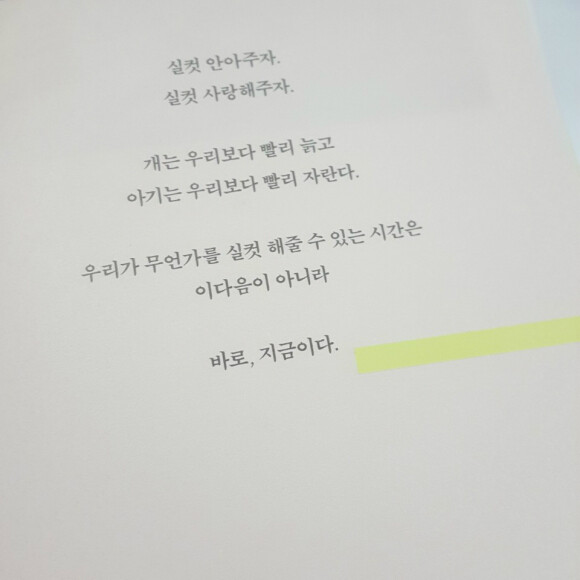 실컷 안아주자.
실컷 사랑해주자.
개는 우리보다 빨리 늙고
아기는 우리보다 빨리 자란다.
우리가 무언가를 실컷 해줄 수 있는 시간은
이다음이 아니라
바로, 지금이다.